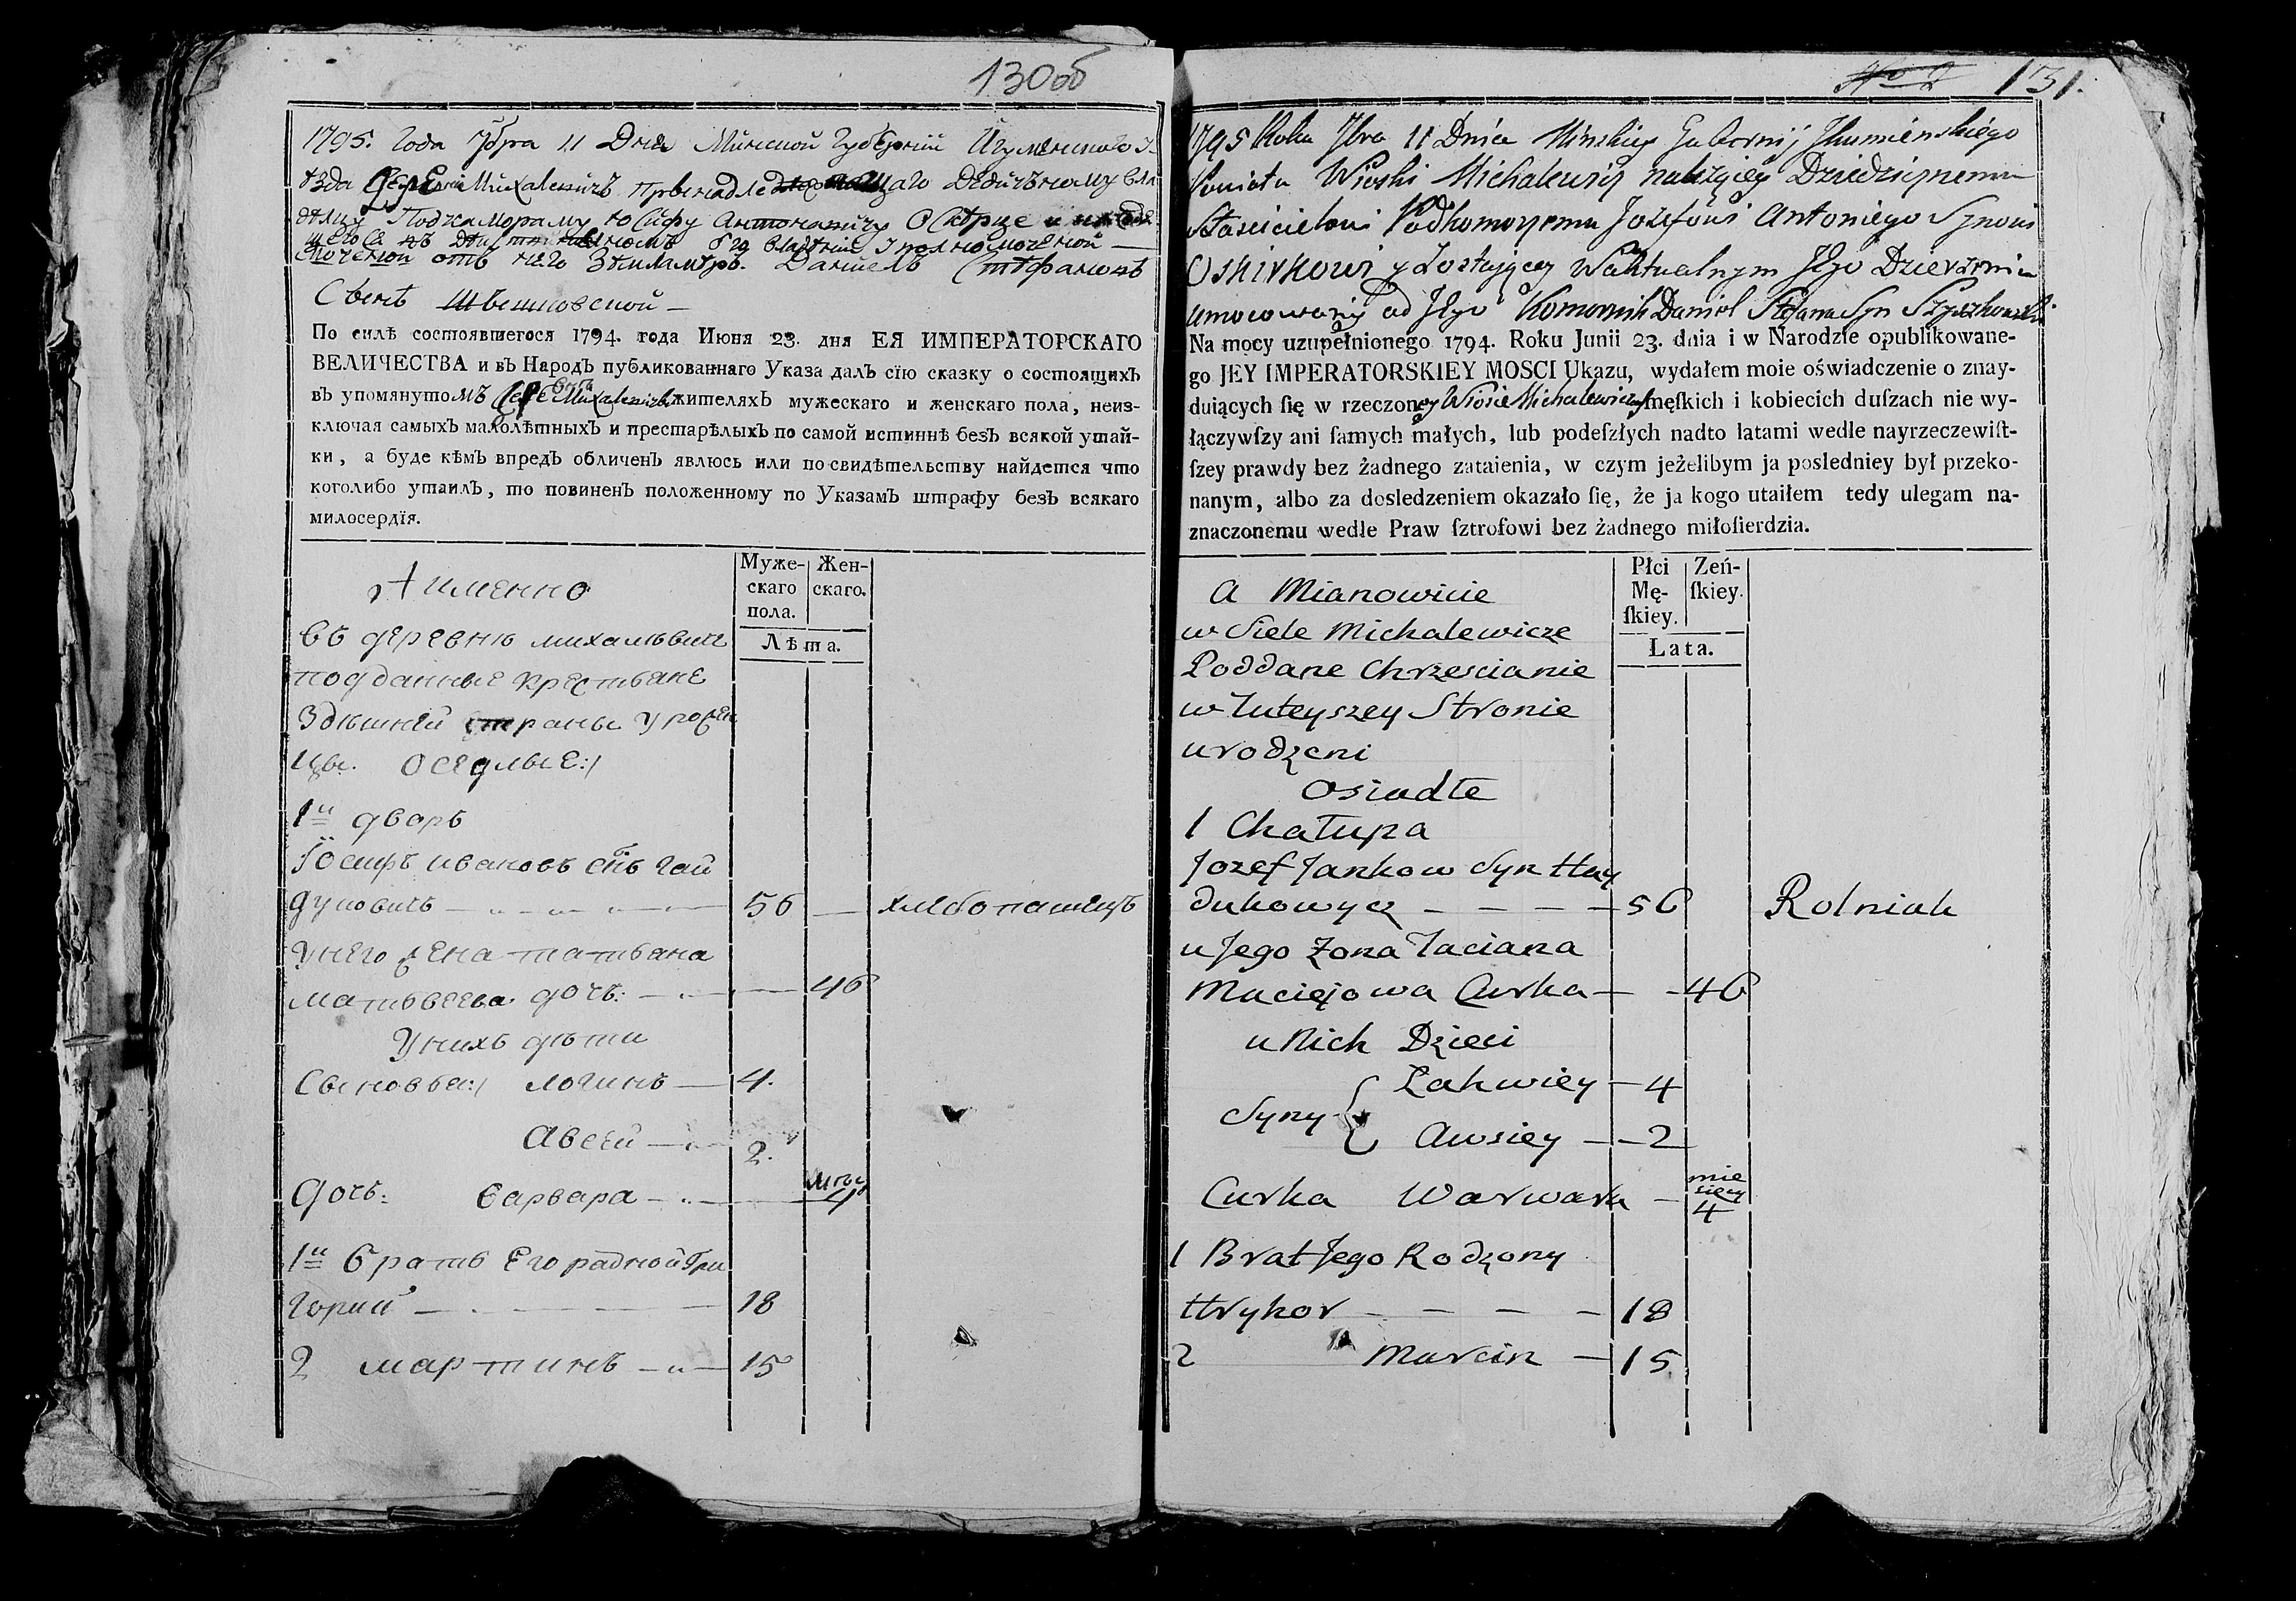 130об
1795. Года 7бра 11 Дня Минской Губернии Игуменского У-
ѣзда Деревни Михалевичъ
дѣлцу Подкаморему Юсифу Антоновичу Оскѣрце
моченой отъ него Данiелъ Стефановъ
По силѣ состоявшегося 1794. года Июня 23. дня ЕЯ ИМПЕРАТОРСКАГО
ВЕЛИЧЕСТВА и въ Народъ публикованнаго Указа далъ сїю сказку о состоящихъ
въ упомянутомъ жителяхъ мужескаго и женскаго пола, неиз-
ключая самыхъ малолѣтныхъ и престарѣлыхъ по самой истиннѣ безъ всякой утай-
ки, а буде кѣмъ впредъ обличенъ явлюсь или по свидѣтельству найдется что
коголибо утаилъ, то повиненъ положенному по Указамъ штрафу безъ всякаго
милосердїя.
Муже-
скаго
пола.
Жен-
скаго.
Лѣта.
А именно
въ деревню михалѣвиче
подданные крестьяне
Здѣшней страны урожен
цы. оседлые:/
1й дворъ
Iосифъ ивановъ снъ гай
дуковичъ 56 — хлебопашецъ
у него жена татьяна
матьвеева дочь: — 46
У нихъ дѣти
Сыновья:/ логинъ — 4.
Авсей — 2.
дочь: варвара — мѣсц 4
1й братъ его радной Гри
горий — 18
2 мартинъ — 15
No 2 131.
1795 Roku 7bra 11 Dnia Minskiey Gubernij Jhumienskiego
Powiatu Wioski Michalewicz należącey Dziedzicznemu
Podkomorzemu Jozefowi Antoniego Synowi
Oskirkowi y Zostającey Waktualnym Jego Dzierżeniu
umocowany od Jego Komornik Daniel Stefana Syn Szyszkowski
Na mocy uzupełnionego 1794. Roku Junii 23. dnia i w Narodzie opublikowane-
go JEY IMPERATORSKIEY MOSCI Ukazu, wydałem moie oświadczenie o znay-
duiących ſię w rzeczoney Wiosce Michalewiczach męſkich i kobiecich duſzach nie wy-
łączywſzy ani ſamych małych, lub podeſzłych nadto latami wedle nayrzeczewiſt-
ſzey prawdy bez żadnego zataienia, w czym jeżelibym ja posledniey był przeko-
nanym, albo za dosledzeniem okazało ſię, że ja kogo utaiłem tedy ulegam na-
znaczonemu wedle Praw ſztrofowi bez żadnego miłoſierdzia.
Płci
Mę-
ſkiey.
Zeń-
ſkiey.
Lata.
a Mianowicie
w Siele Michalewicze
Poddane Chrzescianie
w Tuteyszey Stronie
urodzeni
Osiadłe
1 Chałupa
Jozef Jankow Syn Hay
dukowycz — 56 Rolniak
u Jego Żona Taciana
Maciejowa Curka — 46
u Nich Dzieci
Syny { Łahwiey — 4
Awsiey — 2
Curka Warwara — miesięcy 4
1 Brat Jego Rodzony
Hrykor — 18
2 Marcin — 15